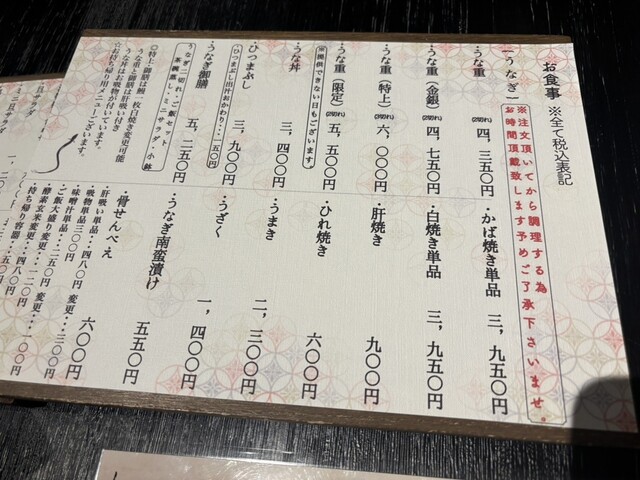 お食事 ※全て税込表記
※注文頂いてから調理する為
お時間頂戴致します予めご了承下さいませ。
―うなぎ―
・うな重(2切れ) 四、三五〇円
・うな重(金銀)(2切れ) 四、七五〇円
・うな重(特上)(3切れ) 六、〇〇〇円
・うな重(限定)(2切れ) 五、五〇〇円
※提供できない日もございます。
・うな丼 三、四〇〇円
・ひつまぶし 三、九〇〇円
ひつまぶし出汁おかわり・・一五〇円
・うなぎ御膳 五、二五〇円
うなぎ二切れ・ご飯セット
茶碗蒸し・ミニサラダ・小鉢
◎特上・御膳は鰻一枚白焼き変更可能
うな重と御膳は肝吸い付き
うな丼はお吸物が付いています。
☆お持ち帰り用メニューございます。
・かば焼き単品 三、九五〇円
・白焼き単品 三、九五〇円
・肝焼き 九〇〇円
・ひれ焼き 六〇〇円
・うまき 二、三〇〇円
・うざく 一、四〇〇円
・うなぎ南蛮漬け 五五〇円
・骨せんべえ 六〇〇円
・肝吸い単品・・四八〇円 変更・・三〇〇円
・吸物単品三〇〇円 変更・・・一〇〇円
・味噌汁単品・・・二五〇円
・ご飯大盛り変更・・一二〇円
・酵素玄米変更・・・四八〇円
・持ち帰り容器・・・
・ミニ豆サラダ